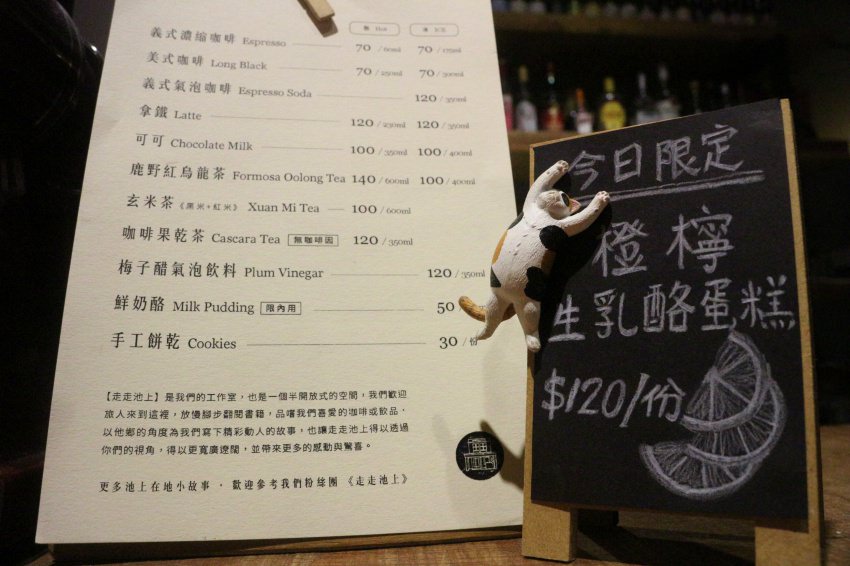 熱 Hot 冰 ICE
義式濃縮咖啡 Espresso 70 /60ml 70 /175ml
美式咖啡 Long Black 70 /250ml 70 /300ml
義式氣泡咖啡 Espresso Soda 120 /350ml
拿鐵 Latte 120 /230ml 120 /350ml
可可 Chocolate Milk 100 /350ml 100 /400ml
鹿野紅烏龍茶 Formosa Oolong Tea 140 /600ml 100 /400ml
玄米茶《黑米+紅米》 Xuan Mi Tea 100 /600ml
咖啡果乾茶 Cascara Tea 無咖啡因 120 /350ml
梅子醋氣泡飲料 Plum Vinegar 120 /350ml
鮮奶酪 Milk Pudding 限內用 50
手工餅乾 Cookies 30 /份
【走走池上】是我們的工作室，也是一個半開放式的空間，我們歡迎
旅人來到這裡，放慢腳步翻閱書籍，品嚐我們喜愛的咖啡或飲品，
以他鄉的角度為我們寫下精彩動人的故事，也讓走走池上得以透過
你們的視角，得以更寬廣遼闊，並帶來更多的感動與驚喜。
更多池上在地小故事，歡迎參考我們粉絲團《走走池上》
今日限定
橙檸
生乳酪蛋糕
$120/份